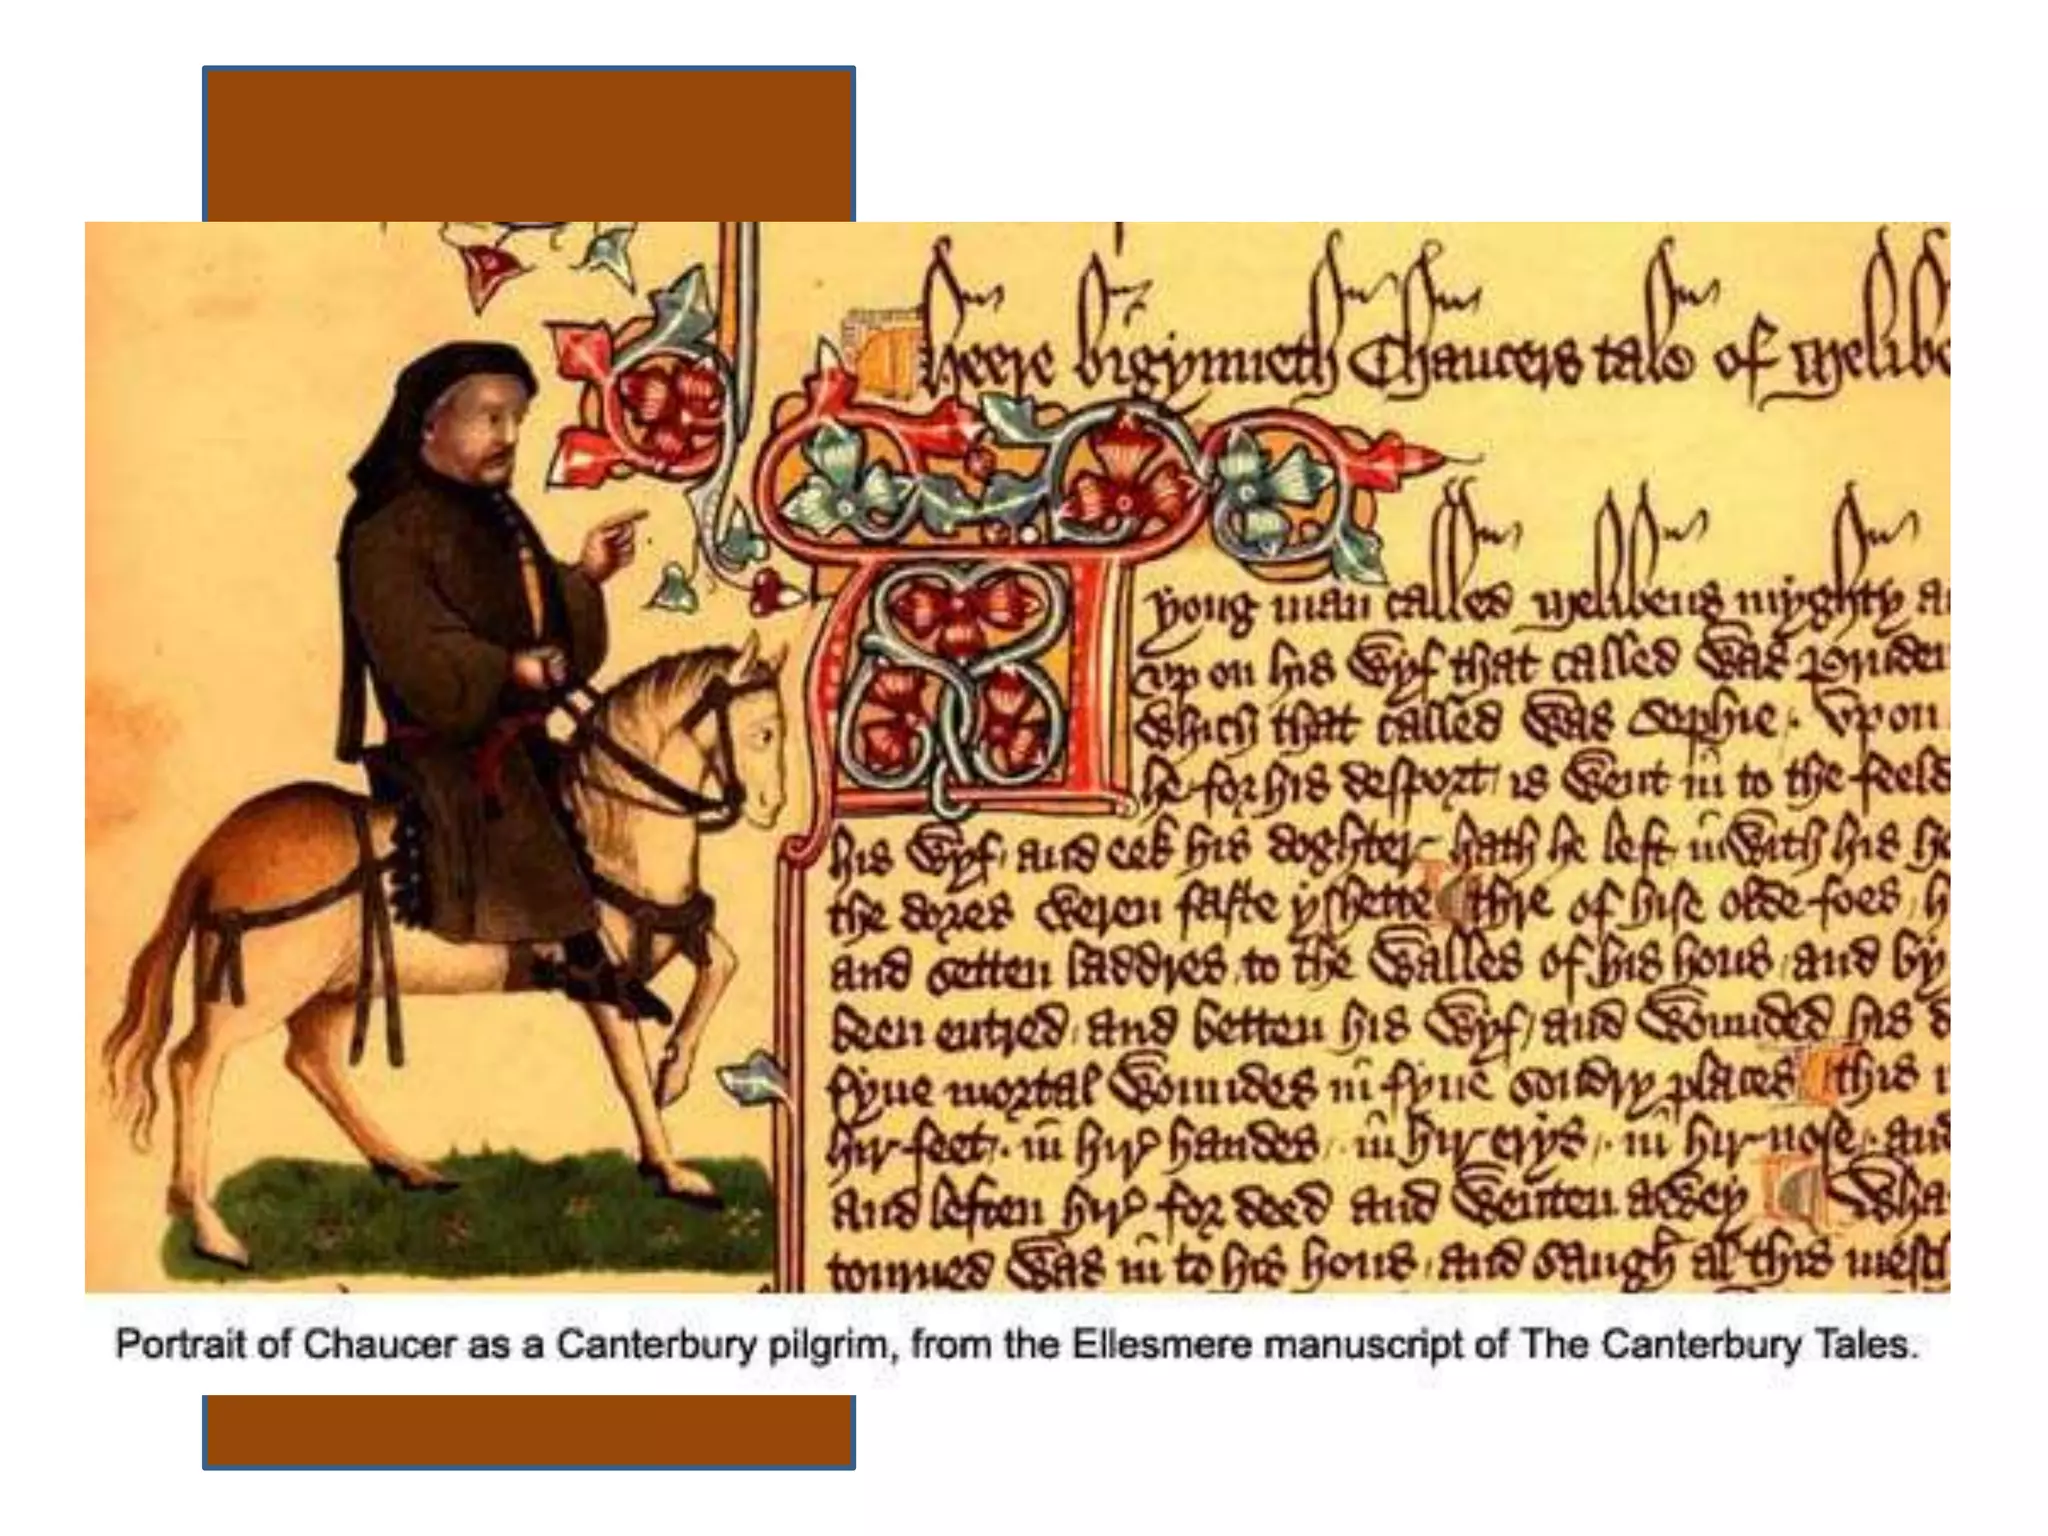 Heere bigynneth Chaucers tale of Melibe
yong man called Melibeus myghty a
up on his wyf that called was Pruden
which that called was Sophie . Vpon
he for his desport is went in to the feeld
his wyf and eek his doghter hath he left inwith his h
the dores weren faste yshette thre of hise olde foes h
and setten laddres to the walles of his hous and by
been entred and betten his wyf and wounded his d
fyue mortal woundes in fyue sondry places this
hir feet in hir handes in hir erys in hir nose and
and leften hir for deed and wenten awey Wha
tourned was in to his hous and saugh al this mesch
Portrait of Chaucer as a Canterbury pilgrim, from the Ellesmere manuscript of The Canterbury Tales.